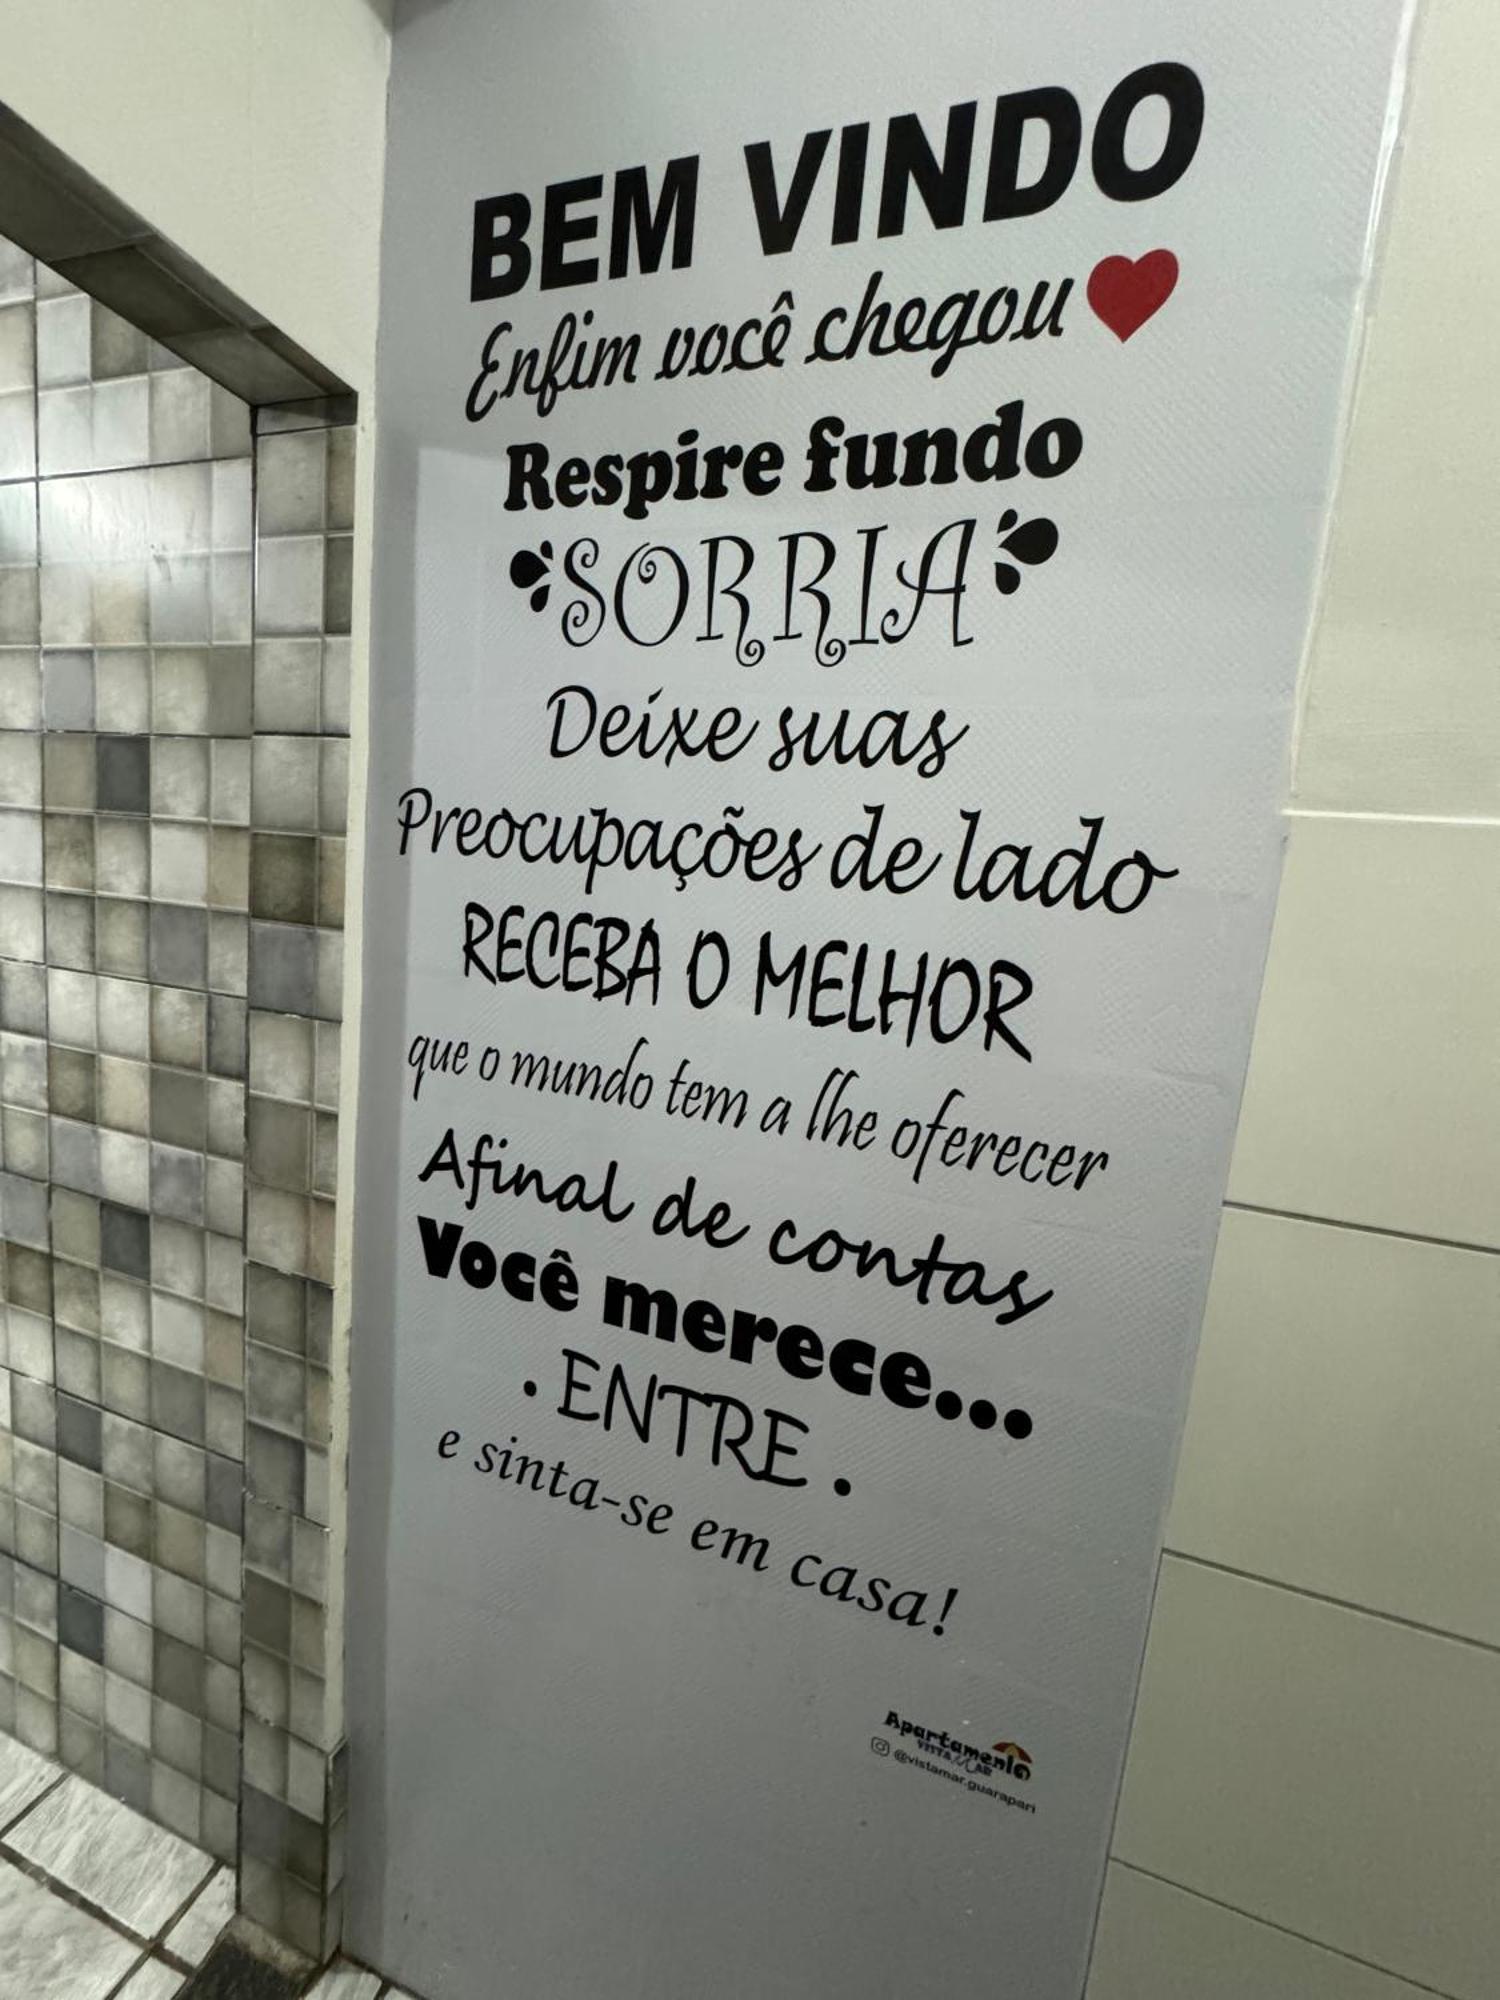 BEM VINDO
Enfim você chegou
Respire fundo
SORRIA
Deixe suas
Preocupações de lado
RECEBA O MELHOR
que o mundo tem a lhe oferecer
Afinal de contas
Você merece...
. ENTRE .
e sinta-se em casa!
Apartamento
VISTA MAR
@vistamar.guarapari